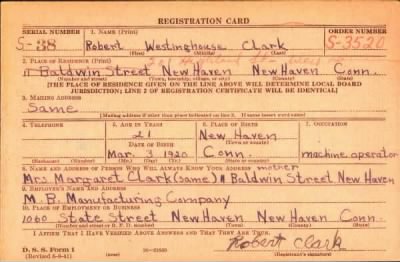 REGISTRATION CARD
SERIAL NUMBER 1. NAME (Print) ORDER NUMBER
S-38 Robert Westinghouse Clark S-3520
2. PLACE OF RESIDENCE (Print)
11 Baldwin Street New Haven New Haven Conn.
[THE PLACE OF RESIDENCE GIVEN ON THE LINE ABOVE WILL DETERMINE LOCAL BOARD
JURISDICTION; LINE 2 OF REGISTRATION CERTIFICATE WILL BE IDENTICAL]
3. MAILING ADDRESS
Same
[Mailing address if other than place indicated on line 2. If same insert word same]
4. TELEPHONE 5. AGE IN YEARS 6. PLACE OF BIRTH 7. OCCUPATION
21 New Haven
DATE OF BIRTH (Town or county)
Mar. 3 1920 Conn. machine operator
(Exchange) (Number) (Mo.) (Day) (Yr.) (State or country)
8. NAME AND ADDRESS OF PERSON WHO WILL ALWAYS KNOW YOUR ADDRESS mother
Mrs Margaret Clark (same) 11 Baldwin Street New Haven
9. EMPLOYER'S NAME AND ADDRESS
M. B. Manufacturing Company
10. PLACE OF EMPLOYMENT OR BUSINESS
1060 State Street New Haven New Haven Conn.
(Number and street or R. F. D. number) (Town) (County) (State)
I AFFIRM THAT I HAVE VERIFIED ABOVE ANSWERS AND THAT THEY ARE TRUE.
Robert Clark
D. S. S. Form 1
(Revised 6-9-41) (Registrant's signature)